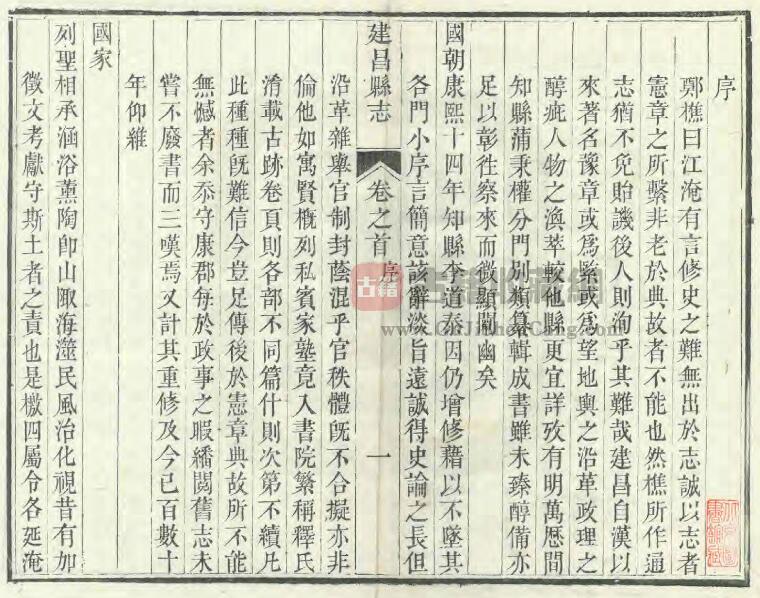 序
鄭樵曰江淹有言修史之難無出於志誠以志者
憲章之所繫非老於典故者不能也然樵所作通
志猶不免貽譏後人則洵乎其難哉建昌自漢以
來著名豫章或為縣或為望地輿之沿革政理之
醇疵人物之渙萃較他縣更宜詳攷有明萬歷間
知縣蒲秉權分門別類纂輯成書雖未臻醇備亦
足以彰徃察來而微顯闡幽矣
國朝康熙十四年知縣李道泰因仍增修藉以不墜其
各門小序言簡意該辭淡旨遠誠得史論之長但
建昌縣志
卷之首
序
一
沿革雜舉官制封蔭混乎官秩體旣不合擬亦非
倫他如寓賢概列私賓家塾竟入書院繁稱釋氏
淆載古跡卷頁則各部不同篇什則次第不續凡
此種種旣難信今豈足傳後於憲章典故所不能
無憾者余忝守康郡每於政事之暇繙閱舊志未
嘗不廢書而三嘆焉又計其重修及今已百數十
年仰維
國家
列聖相承涵浴薰陶卽山陬海澨民風治化視昔有加
徵文考獻守斯土者之責也是檄四屬令各延淹
古籍
www.GuJiShouCang.com